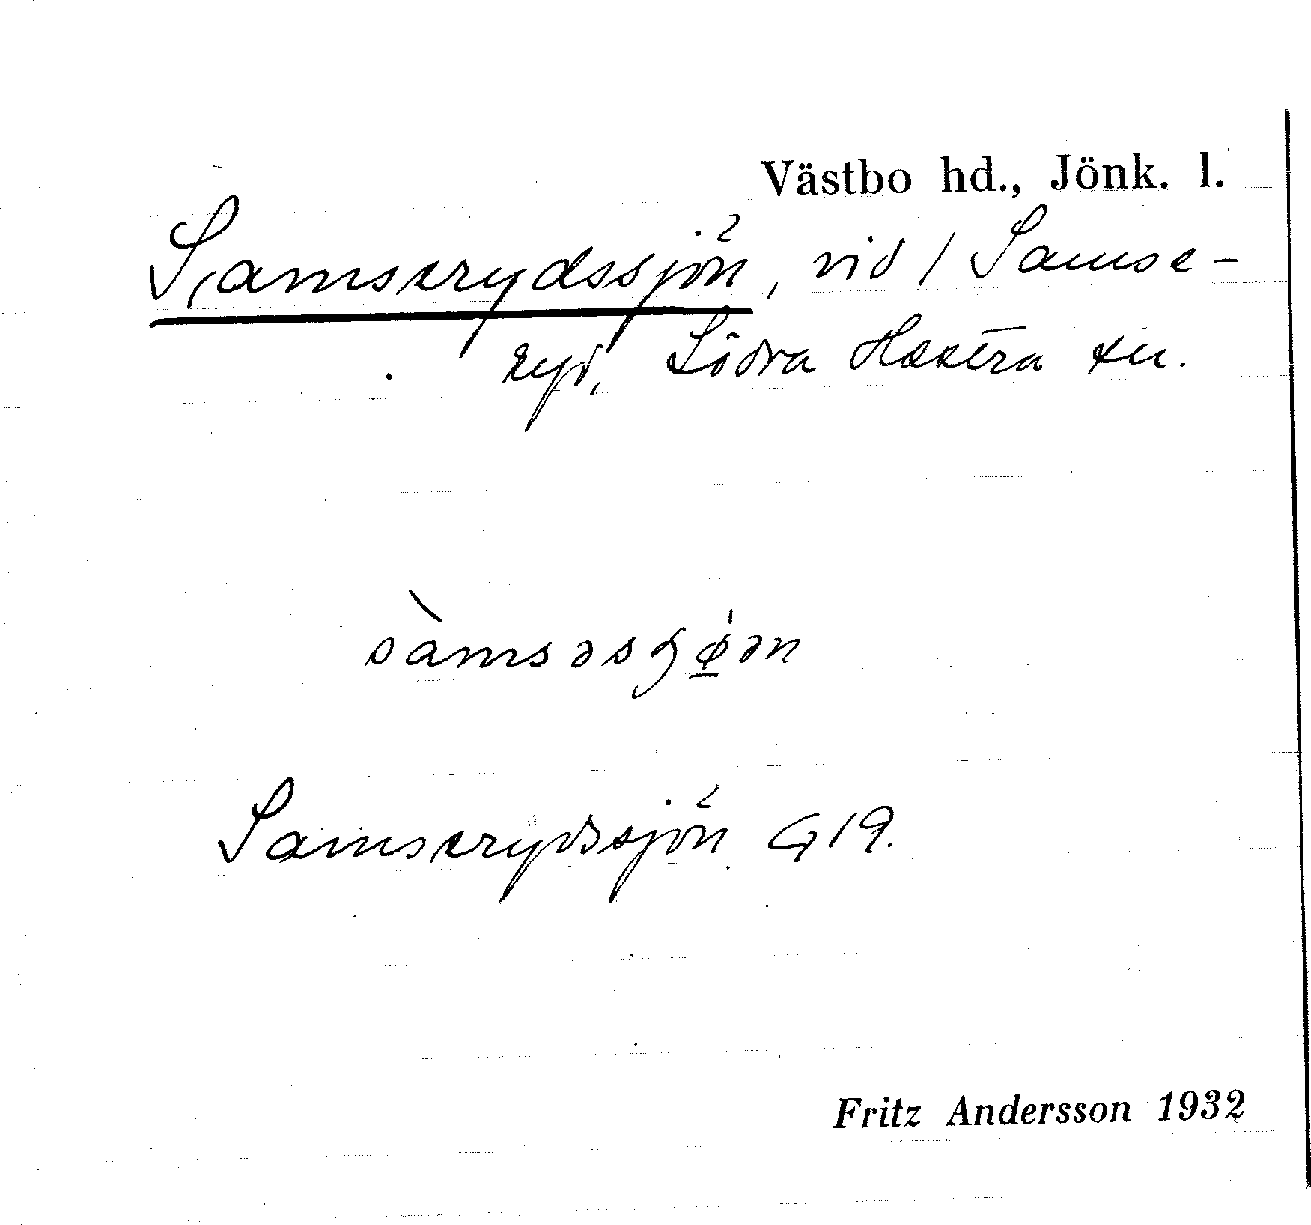 Västbo hd., Jönk. l.
Samserydssjön, vid / Samse-
ryd, Södra Hestra sn.
sàmsəsʂø̱ən
Samserydssjön G19.
Fritz Andersson 1932